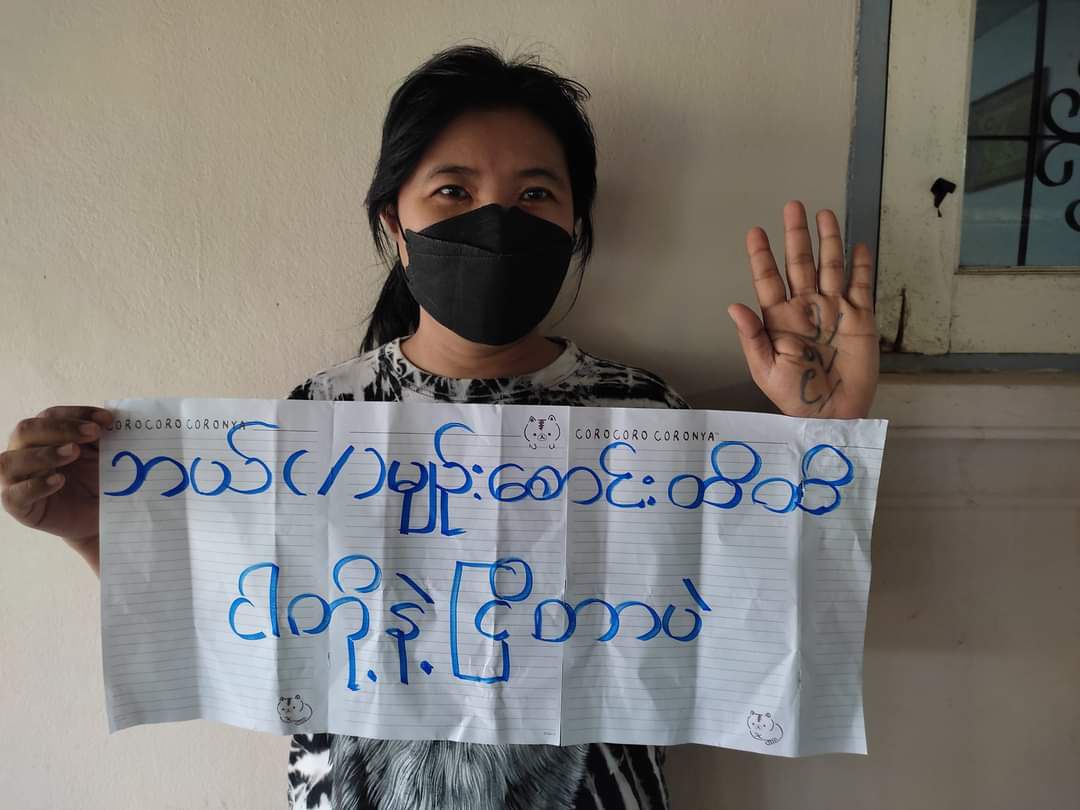 COROCORO CORONYA™ COROCORO CORONYA™
ဘယ်(/)မျဉ်းစောင်းထိထိ
ငါတို့နဲ့ ငြိုတာပဲ